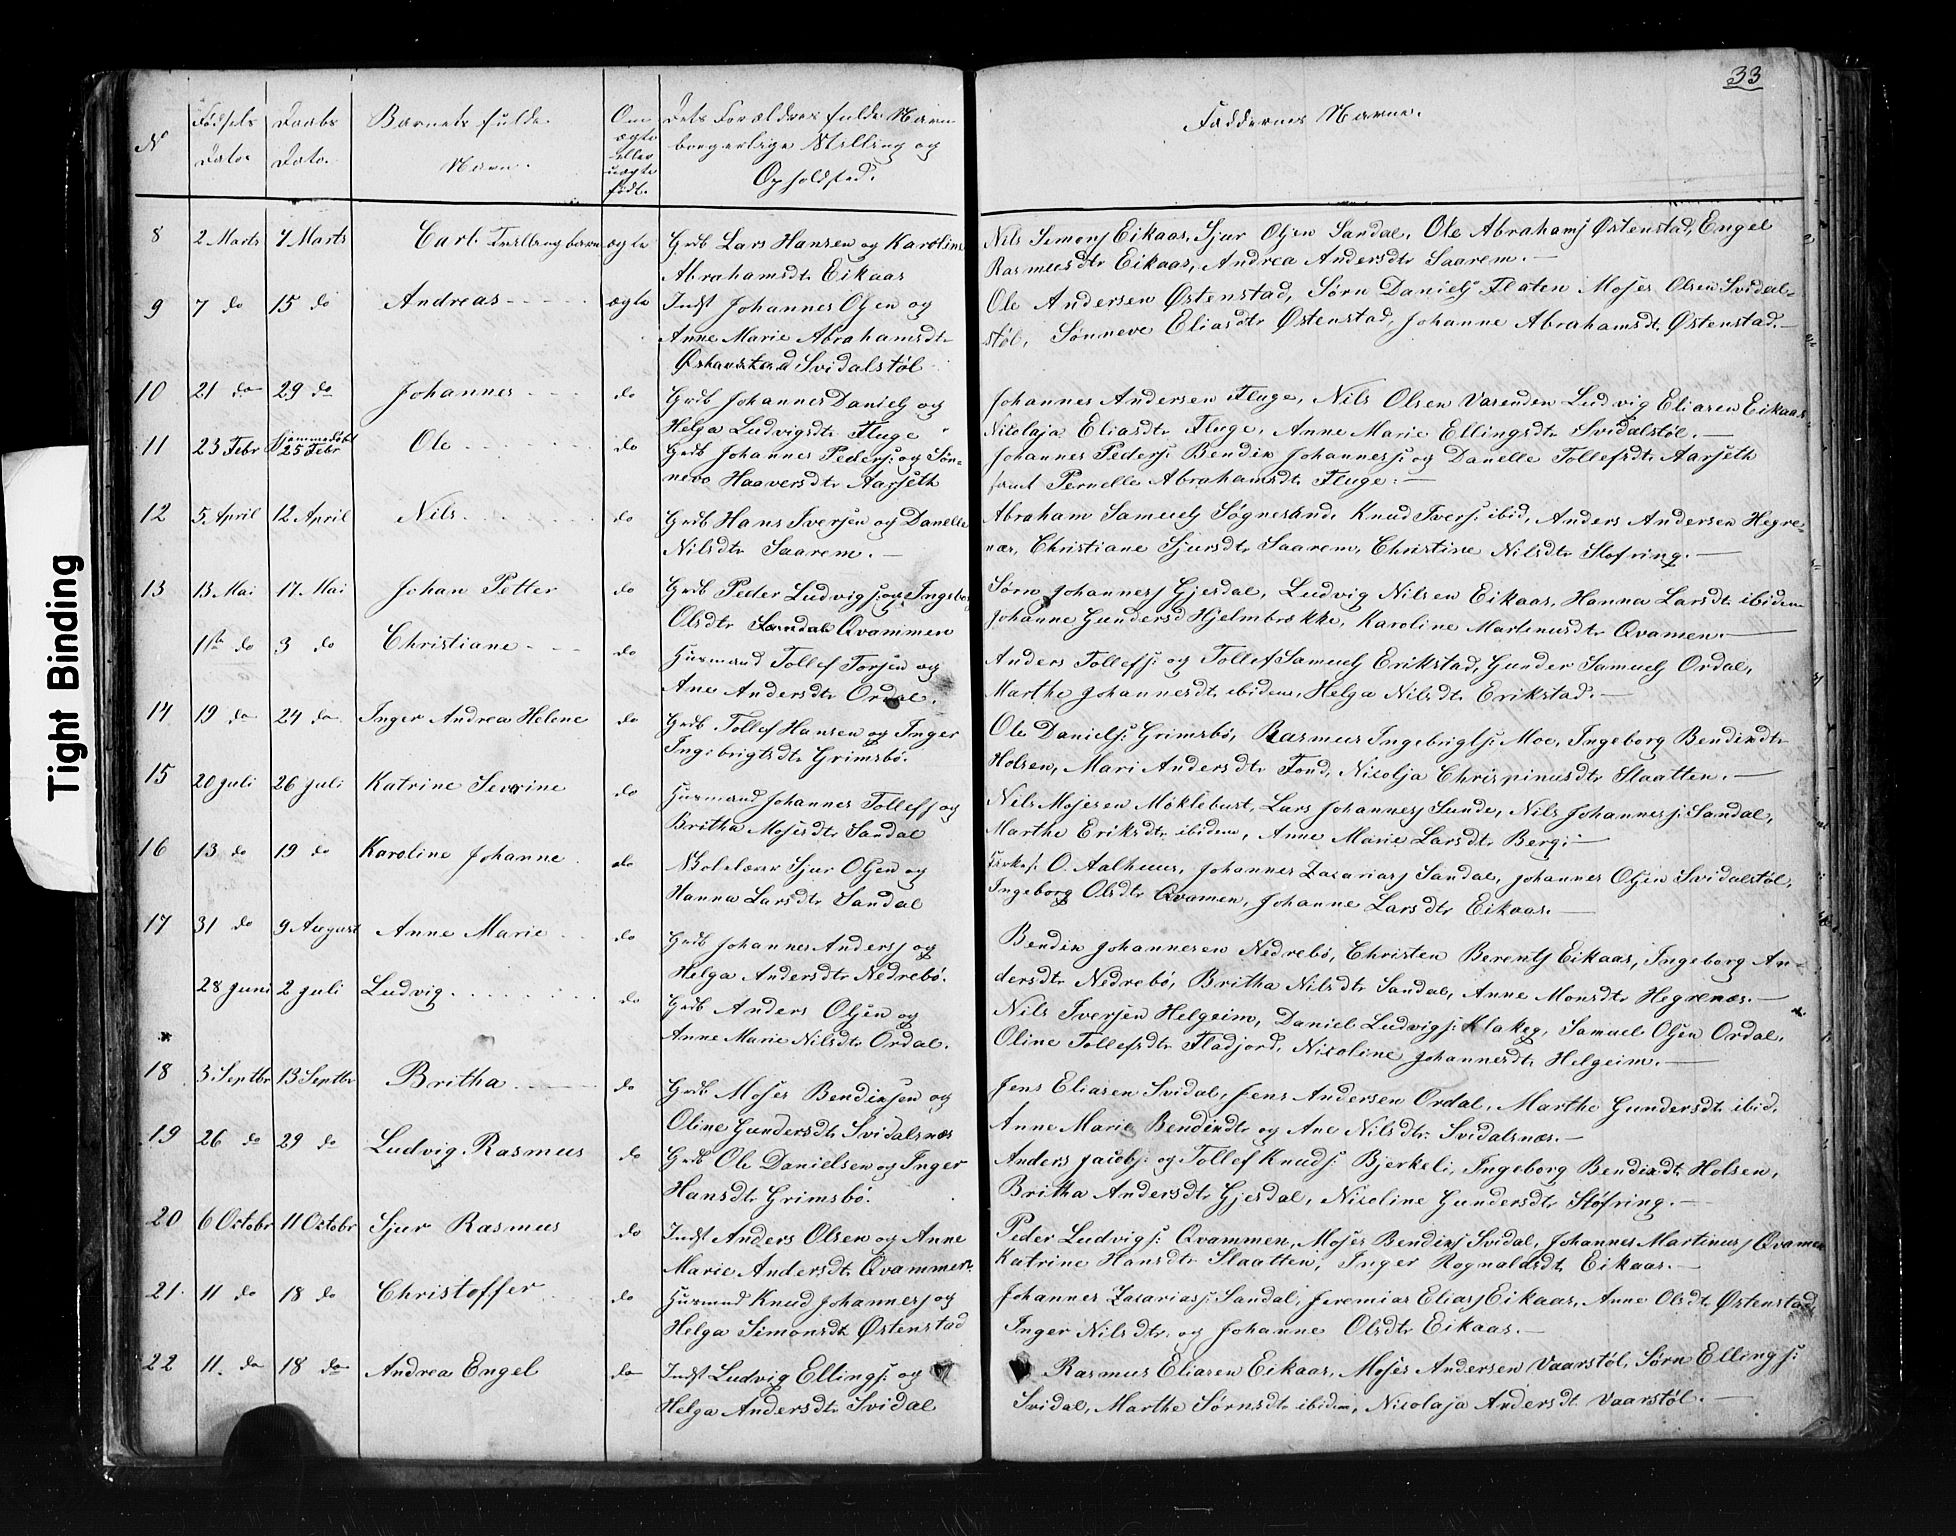 33
Tight Binding
No
Fødsels
Dato.
Daabs
Dato.
Barnets fulde
Navn.
Om
ægte
eller
uægte
født.
Dets Forældres fulde Navn
borgerlige Stilling og
Opholdsted.
Faddernes Navne.
8 2 Marts 7 Marts Carl. Tvillingbarn ægte Grdb Lars Hansen og Karoline
Abrahamsdtr Eikaas
Nils Simons Eikaas, Sjur Olsen Sandal, Ole Abrahams Østenstad, Engel
Rasmusdtr Eikaas, Andrea Andersdtr Saarem.
9 7 do 15 do Andreas ægte Indst Johannes Olsen og
Anne Marie Abrahamsdtr
Svidalstøl
Ole Andersen Østenstad, Sørn Daniels Flaten Moses Olsen Svidal-
støl, Sønneve Eliasdtr Østenstad, Johanne Abrahamsdt Østenstad.
10 21 do 29 do Johannes do Grdb Johannes Daniels og
Helga Ludvigsdtr Fluge
Johannes Andersen Fluge, Nils Olsen Vasenden Ludvig Eliasen Eikaas
Nicolaja Eliasdtr Fluge, Anne Marie Ellingsdtr Svidalstøl.
11 23 Febr Hjemmedøbt
25 Febr Ole do Grdb Johannes Peders: og Søn-
neva Haaversdtr Aarseth
Johannes Peders: Bendix Johannes: og Danelle Tollefsdtr Aarseth
samt Pernelle Abrahamsdtr Fluge.
12 5 April 12 April Nils do Grdb Hans Iversen og Danelle
Nilsdtr Saarem.
Abraham Samuels Søgnesand, Knud Ivers: ibid, Anders Andersen Hegre-
næs, Christiane Sjursdtr Saarem, Christine Nilsdtr Støfring.
13 13 Mai 17 Mai Johan Petter do Grdb Peder Ludvigs: og Ingeborg
Olsdtr Sandal Qvammen
Sørn Johannes Gjesdal, Ludvig Nilsen Eikaas, Hanna Larsdtr ibidem
Johanne Gundersd Hjelmbrække, Karoline Martinusdtr Qvamen.
do 3 do Christiane do Husmand Tollef Torsen og
Ane Andersdtr Ordal.
Anders Tollefs: og Tollef Samuels Erikstad, Gunder Samuels Ordal,
Marthe Johannesdt ibidem, Helga Nilsdtr Erikstad.
14 19 do 24 do Inger Andrea Helene do Grdb Tollef Hansen og Inger
Ingebrigtsdtr Grimsbø.
Ole Daniels: Grimsbø, Rasmus Ingebrigts: Moe, Ingeborg Bendixdtr
Holsen, Mari Andersdtr Fond, Nicolja Chrispinusdtr Slaatten.
15 20 Juli 26 Juli Katrine Severine do Husmand Johannes Tollefs og
Britha Mosesdtr Sandal
Nils Mosesen Møklebust, Lars Johanness Sunde, Nils Johannes: Sandal,
Marthe Eriksdtr ibidem, Anne Marie Larsdtr Berg:
16 13 do 19 do Karoline Johanne do Skolelærer Sjur Olsen og
Hanna Larsdtr Sandal
Kirkes: O. Aalhuus, Johannes Zacarias Sandal, Johannes Olsen Svidalstøl,
Ingeborg Olsdtr Qvamen, Johanne Larsdtr Eikaas.
17 31 do 9 August Anne Marie do Grdb Johannes Anders og
Helga Andersdtr Nedrebø.
Bendix Johannesen Nedrebø, Christen Berents Eikaas, Ingeborg An-
dersdtr Nedrebø, Britha Nilsdtr Sandal, Anne Monsdtr Hegrenæs.
28 Juni 2 Juli Ludvig do Grdb Anders Olsen og
Anne Marie Nilsdtr Ordal.
Nils Iversen Helgeim, Daniel Ludvigs: Klakeg, Samuel Olsen Ordal,
Oline Tollefsdtr Fladjord, Nicoline Johannesdt Helgeim.
18 3 Septbr 13 Septbr Britha do Grdb Moses Bendixsen og
Oline Gundersdt Svidalsnæs
Jens Eliasen Svidal, Jens Andersen Ordal, Marthe Gundersdt ibid,
Anne Marie Bendixdtr og Ane Nilsdtr Svidalsnæs.
19 26 do 29 do Ludvig Rasmus do Grdb Ole Danielsen og Inger
Hansdtr Grimsbø.
Anders Jacobs: og Tollef Knuds: Bjerkeli, Ingeborg Bendixdt Holsen,
Britha Andersdtr Gjesdal, Nicoline Gundersdtr Støfring.
20 6 Octobr 11 Octobr Sjur Rasmus do Indst Anders Olsen og Anne
Marie Andersdt Qvammen
Peder Ludvigs: Qvammen, Moses Bendixs Svidal, Johannes Martinus Qvamen
Katrine Hansdtr Slaatten, Inger Rognaldsdt Eikaas.
21 11 do 18 do Christoffer do Husmnd Knud Johannes og
Helga Simonsdt Østenstad
Johannes Zacarias: Sandal, Jeremias Elias Eikaas, Anne Olsdtr Østenstad
Inger Nilsdtr og Johanne Olsdtr Eikaas.
22 11 do 18 do Andrea Engel do Indst Ludvig Ellings: og
Helga Andersdtr Svidal
Rasmus Eliasen Eikaas, Moses Andersen Vaarstøl, Sørn Ellings:
Svidal, Marthe Sørnsdtr ibidem, Nicolaja Andersdt Vaarstøl.